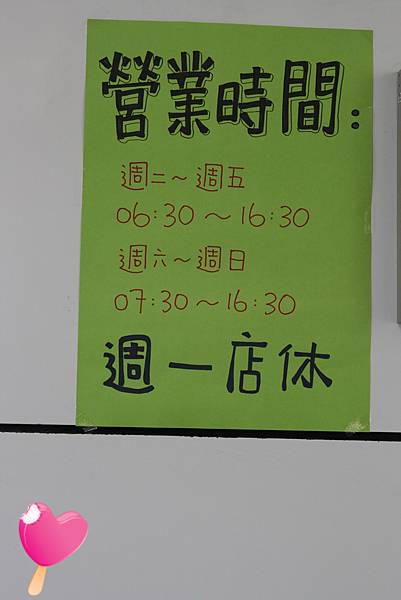 營業時間:
週二~週五
06:30~16:30
週六~週日
07:30~16:30
週一店休